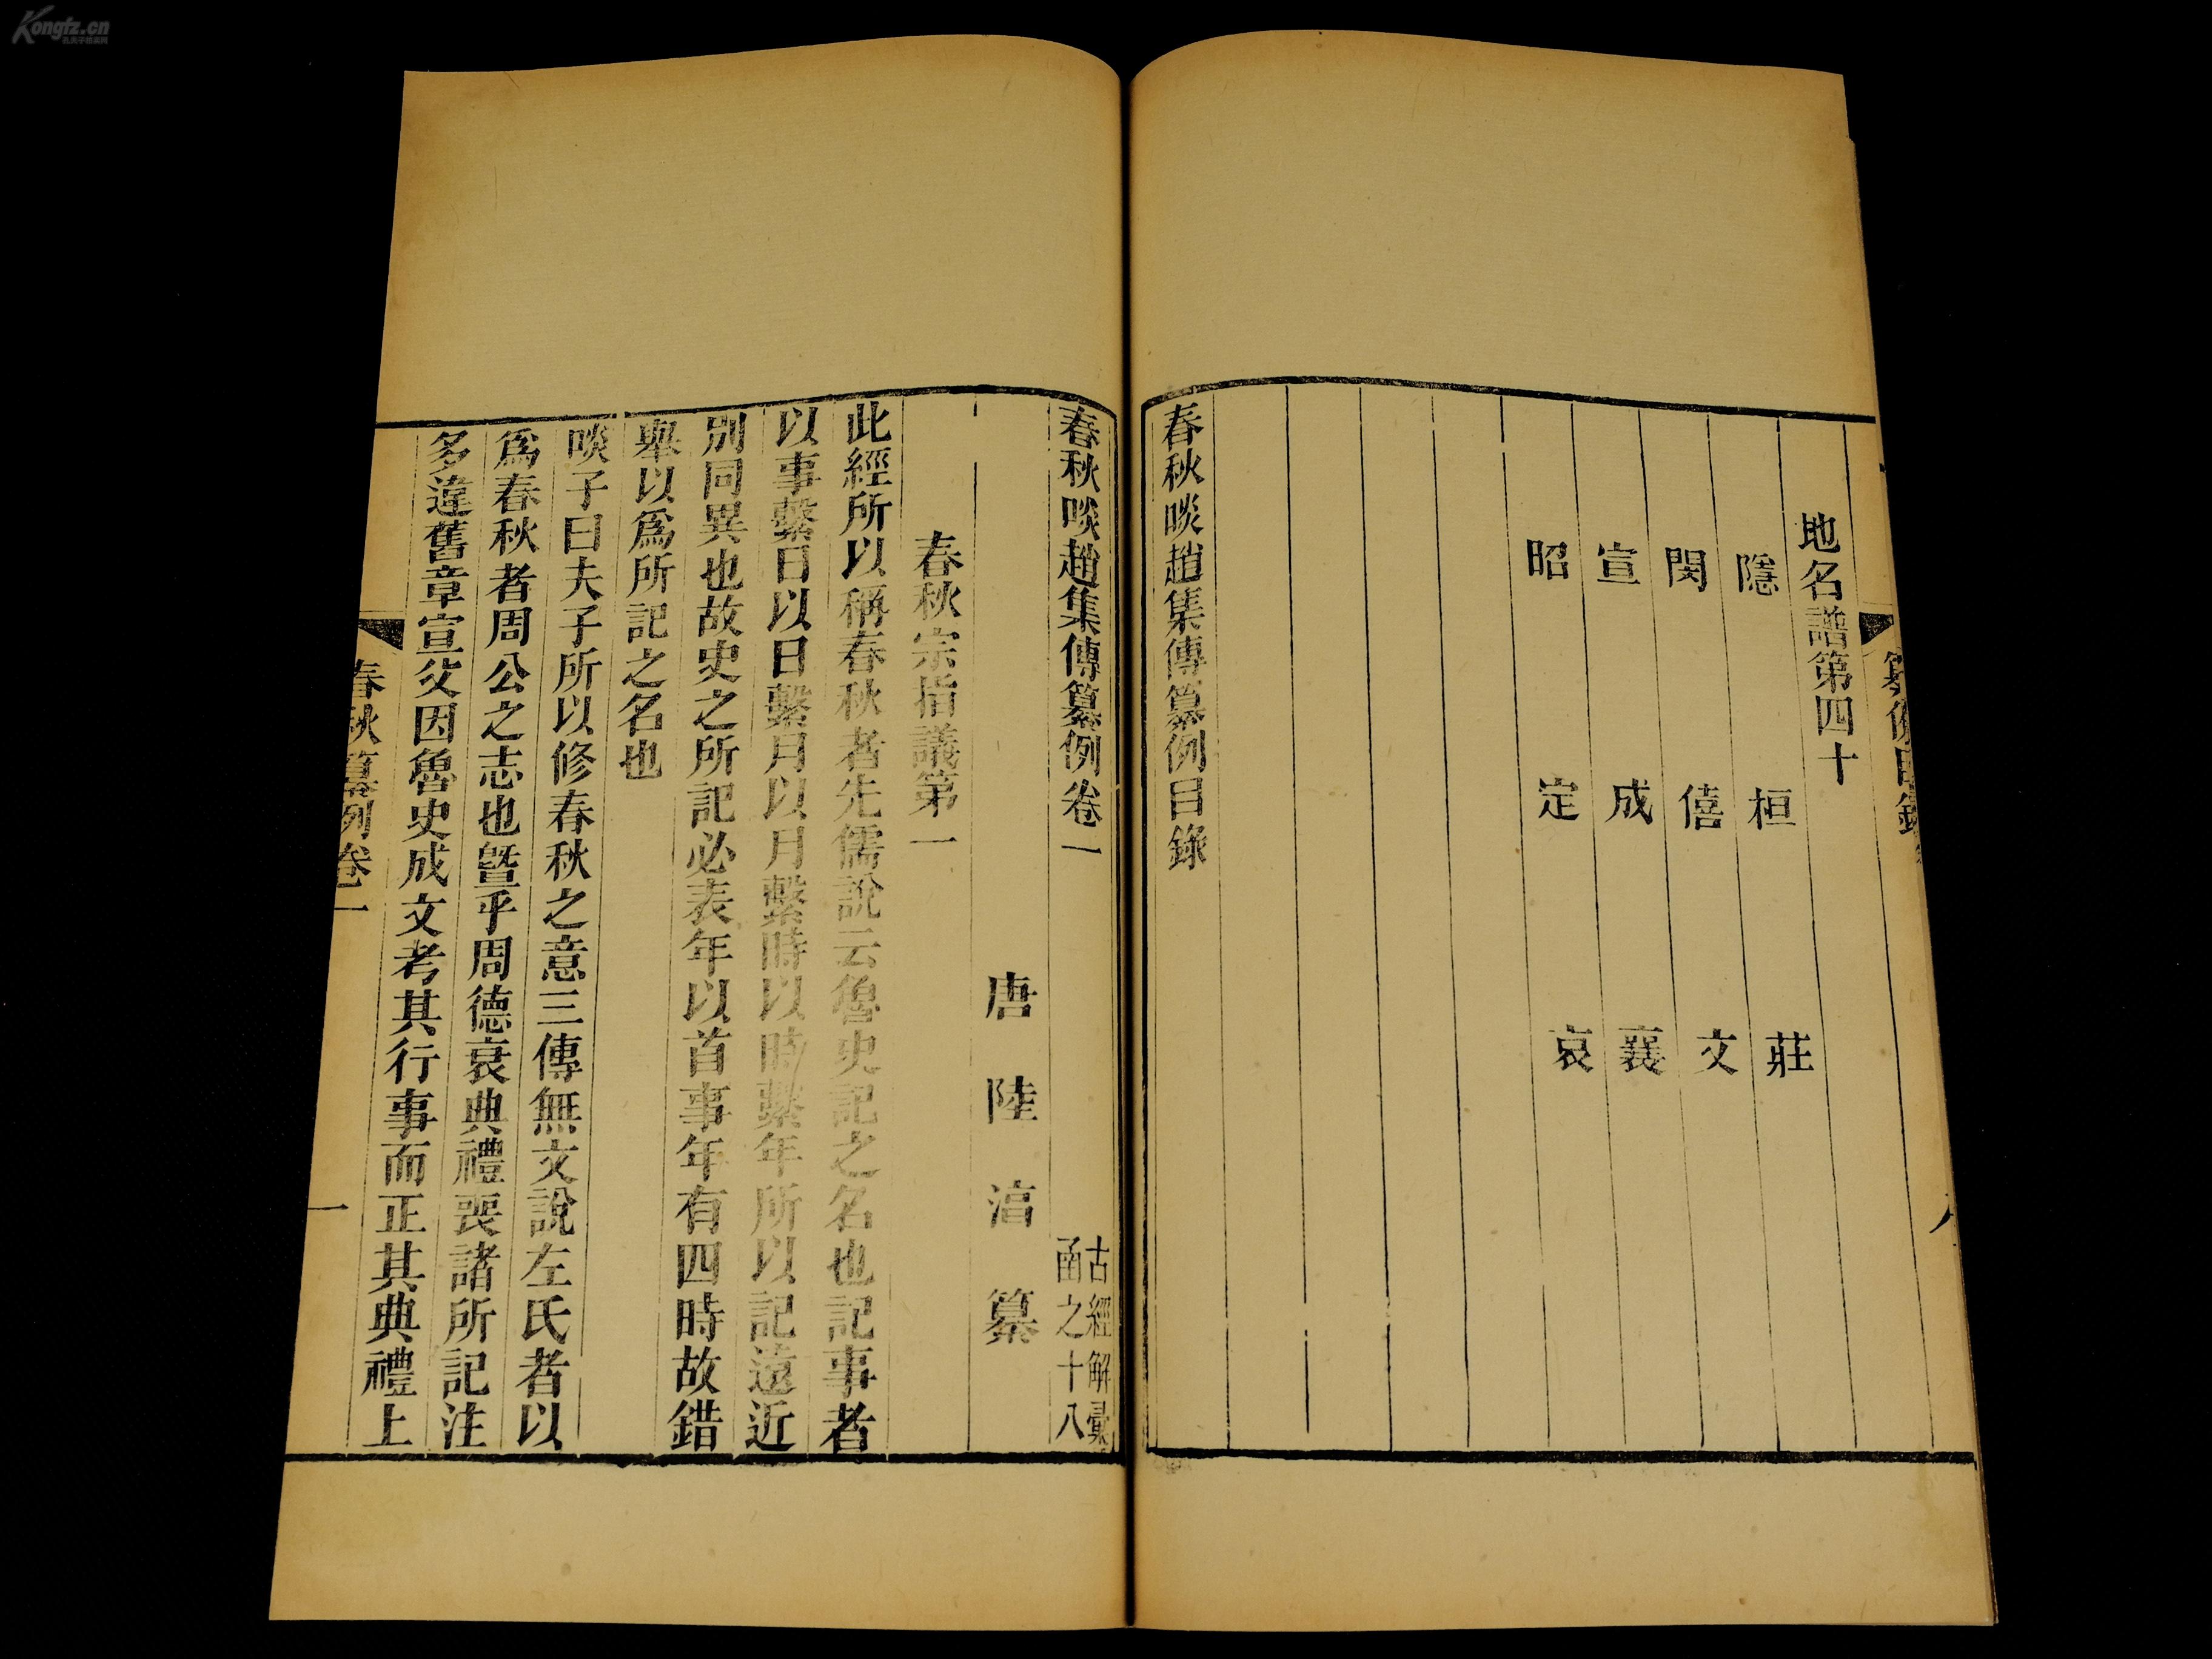 Kongfz.cn
地名譜第四十
隱 桓 莊
閔 僖 文
宣 成 襄
昭 定 哀
春秋啖趙集傳纂例目錄
春秋啖趙集傳纂例卷一
古經解彙
函之十八
唐 陸 淳 纂
春秋宗指議第一
此經所以稱春秋者先儒說云魯史記之名也記事者
以事繫日以日繫月以月繫時以時繫年所以記遠近
別同異也故史之所記必表年以首事年有四時故錯
舉以為所記之名也
啖子曰夫子所以修春秋之意三傳無文說左氏者以
為春秋者周公之志也暨乎周德衰典禮喪諸所記注
多違舊章宣父因魯史成文考其行事而正其典禮上
春秋纂例卷一
一